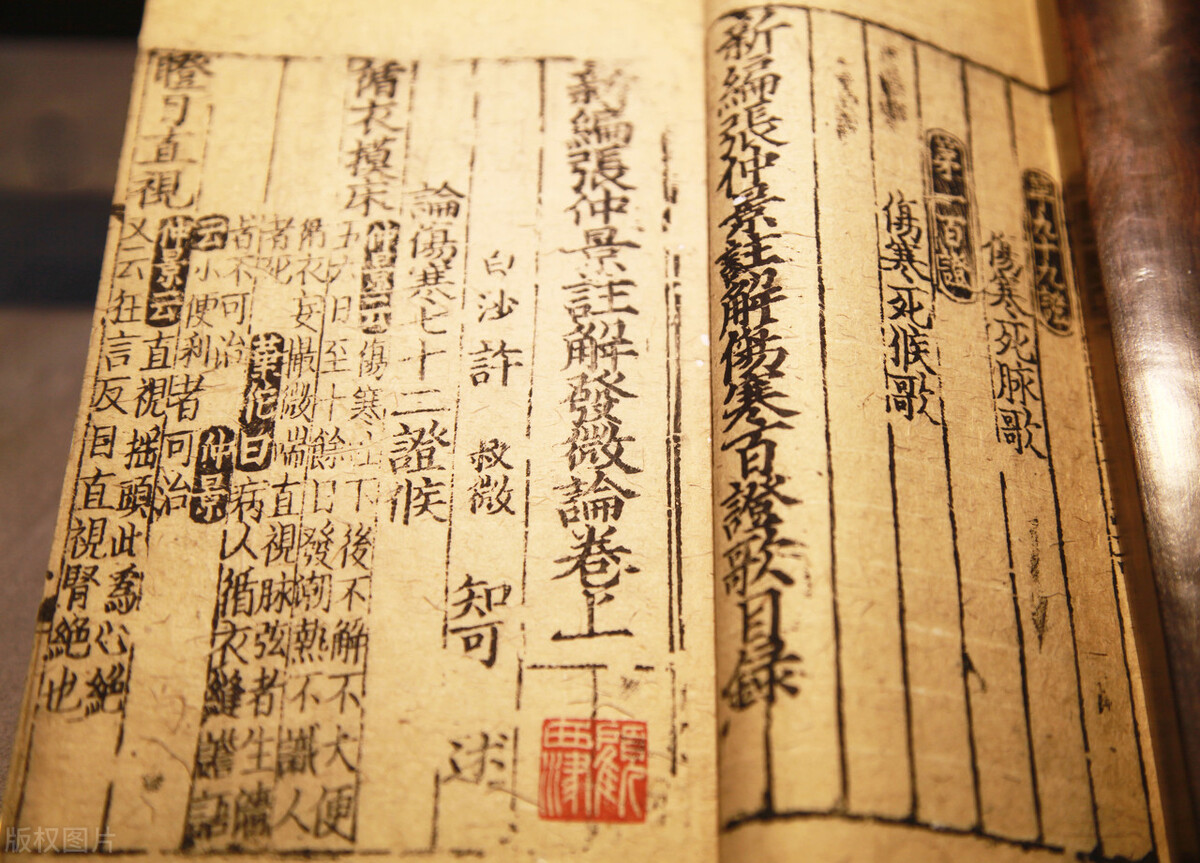 第九十九證
傷寒死脉歌
第一百證
傷寒死候歌
新編張仲景註解傷寒百證歌目録
新編張仲景註解發微論卷上
白沙許 叔微 知可 述
論傷寒七十二證候
循衣摸床
仲景云傷寒吐下後不解不大便
五六日至十餘日發潮熱不識人
循衣妄撮微喘直視脉弦者生濇
者死 華佗曰病人循衣縫譫語
者不可治 仲景
云小便利者可治
瞪目直視
仲景云直視揺頭此爲心絶
又云狂言反目直視腎絶也
版权图片